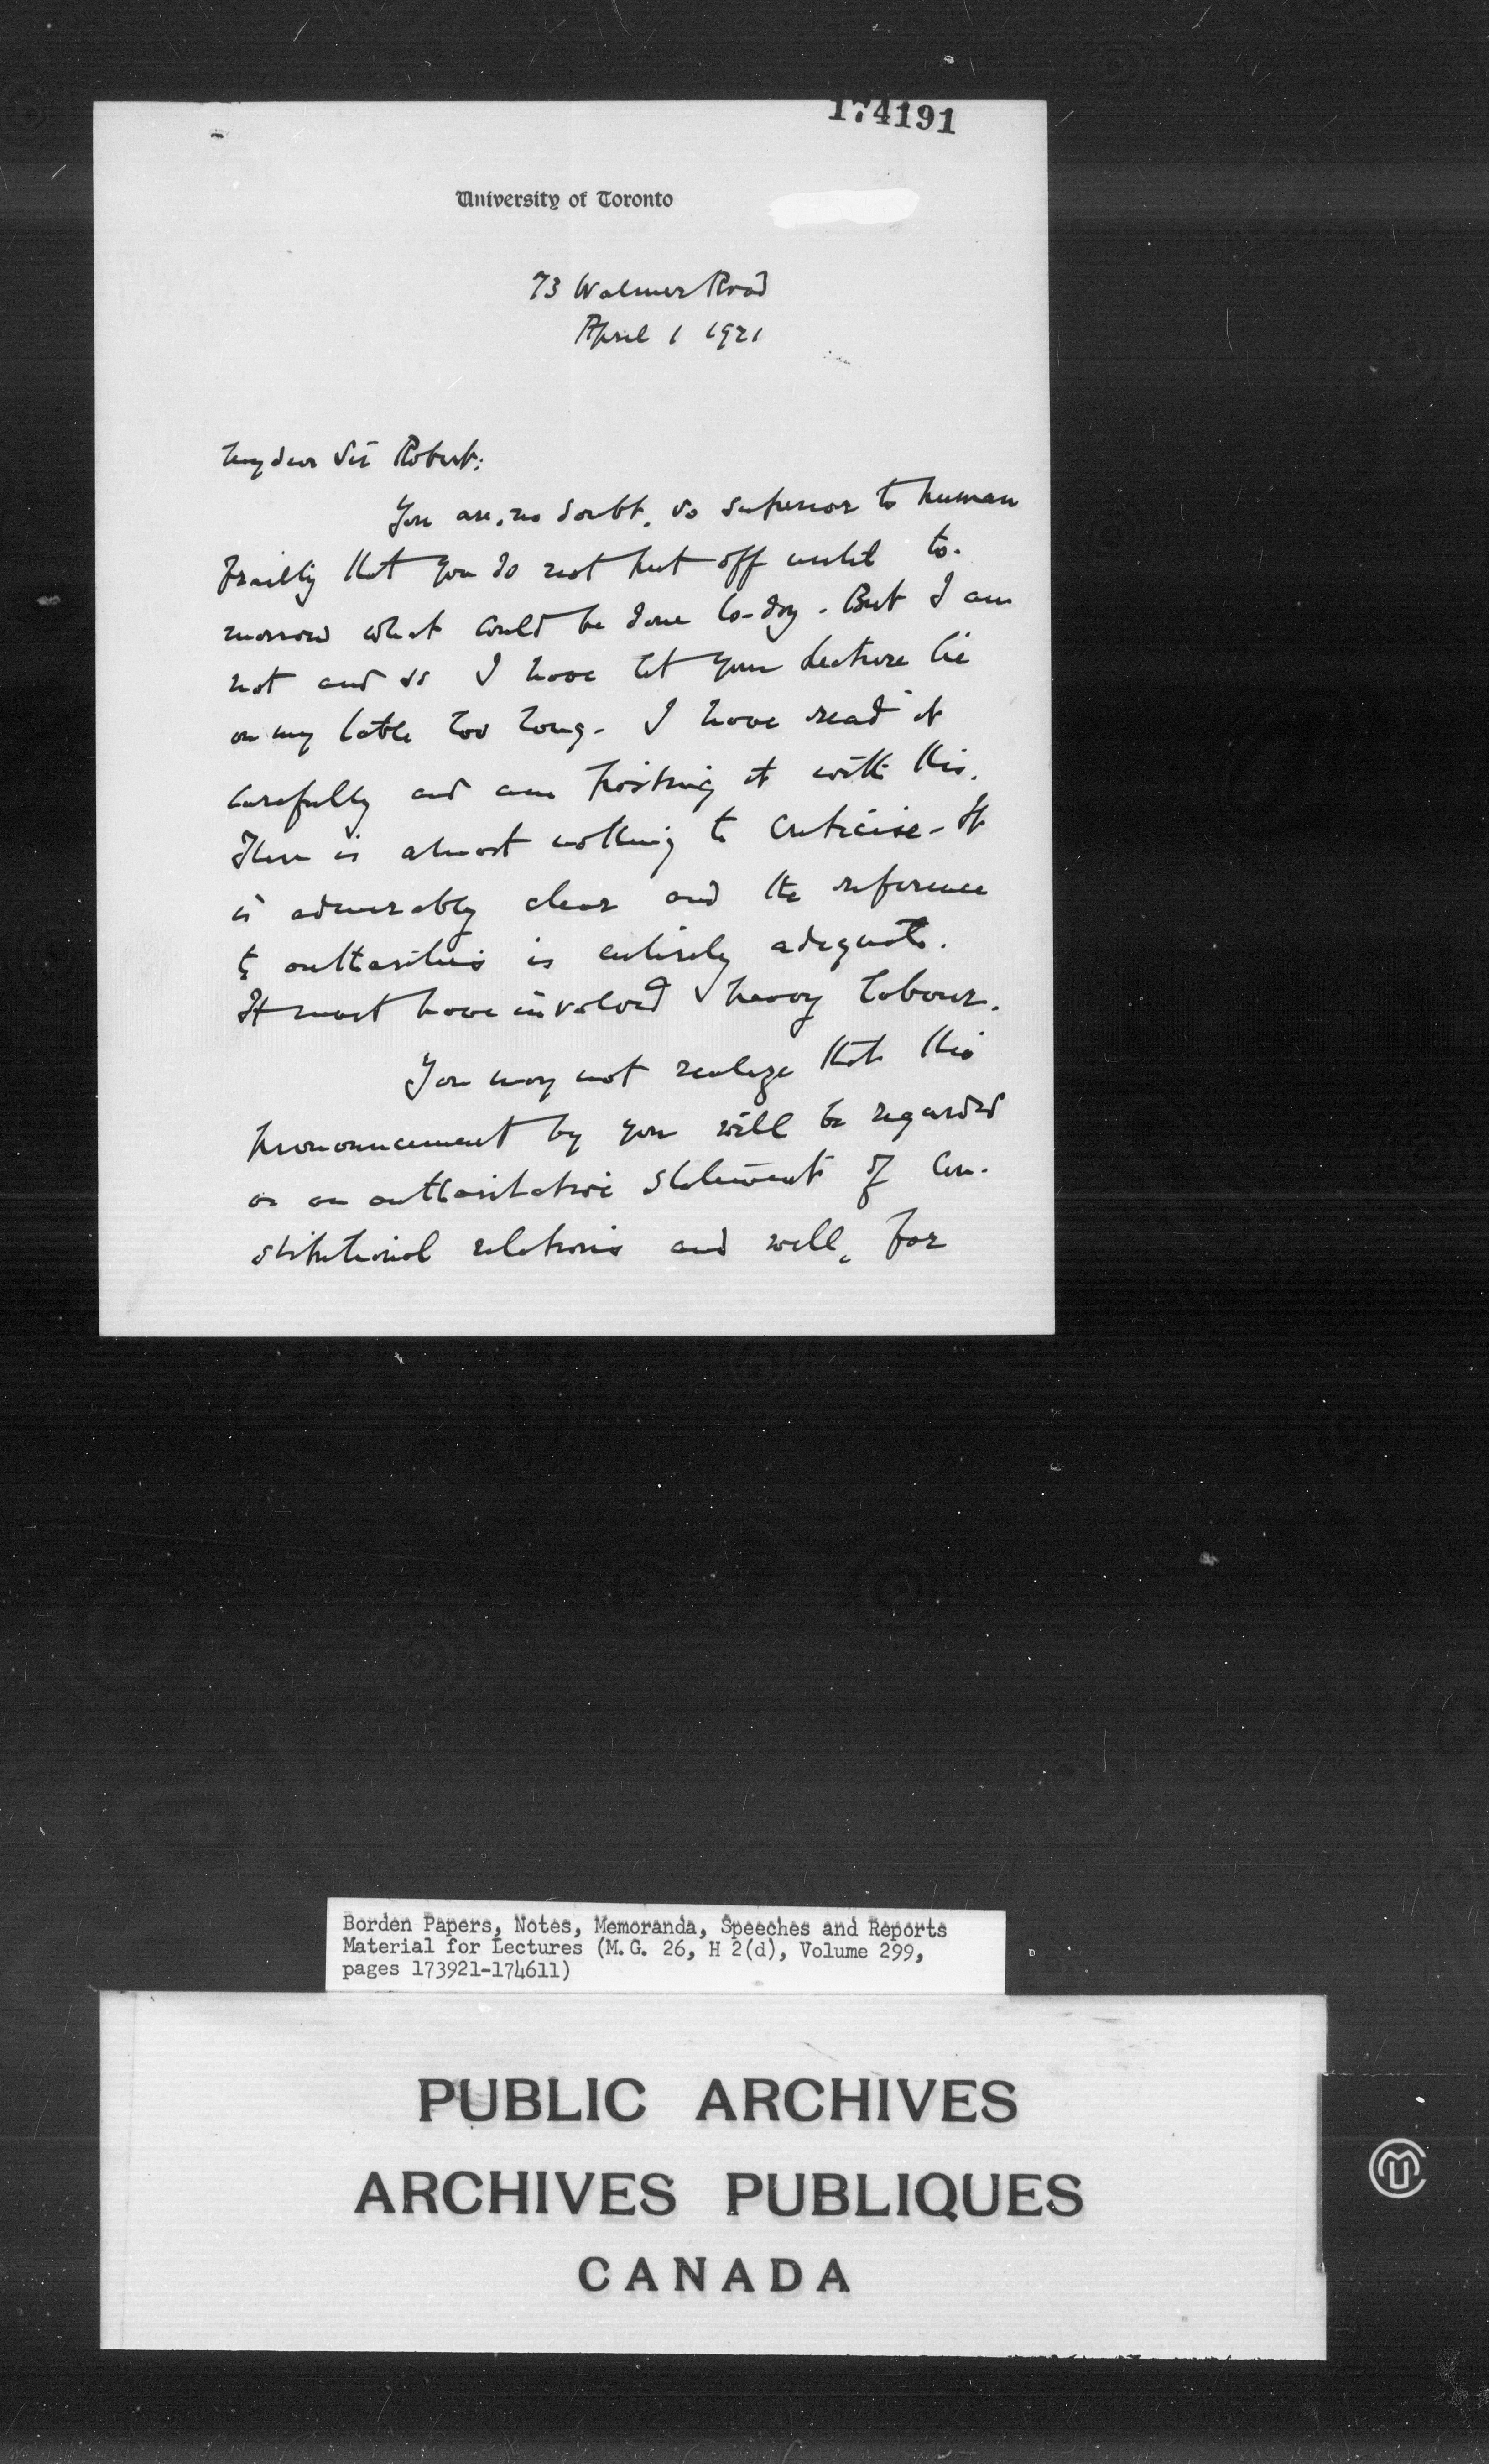 174191
University of Toronto
73 Walmer Road
April 1 1921
My dear Sir Robert:
You are, no doubt, so superior to human
frailty that you do not put off until to-
morrow what could be done to-day. But I am
not and so I have let your Lecture lie
on my table too long. I have read it
carefully and am posting it with this.
There is almost nothing to criticise. It
is admirably clear and the reference
to authorities is entirely adequate.
It must have involved heavy labour.
You may not realize that this
pronouncement by you will be regarded
as an authoritative statement of con-
stitutional relations and will, for
Borden Papers, Notes, Memoranda, Speeches and Reports
Material for Lectures (M.G. 26, H 2(d), Volume 299,
pages 173921-174611)
PUBLIC ARCHIVES
ARCHIVES PUBLIQUES
CANADA